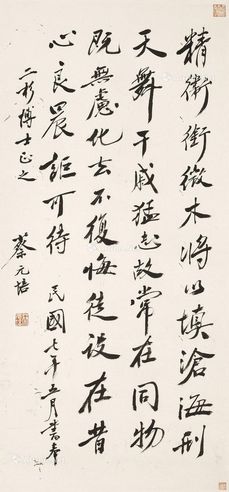 精衛銜微木將以填滄海刑
天舞干戚猛志故常在同物
既無慮化去不復悔徒設在昔
心良晨詎可待 民國七年五月書奉
二彬博士正之
蔡元培